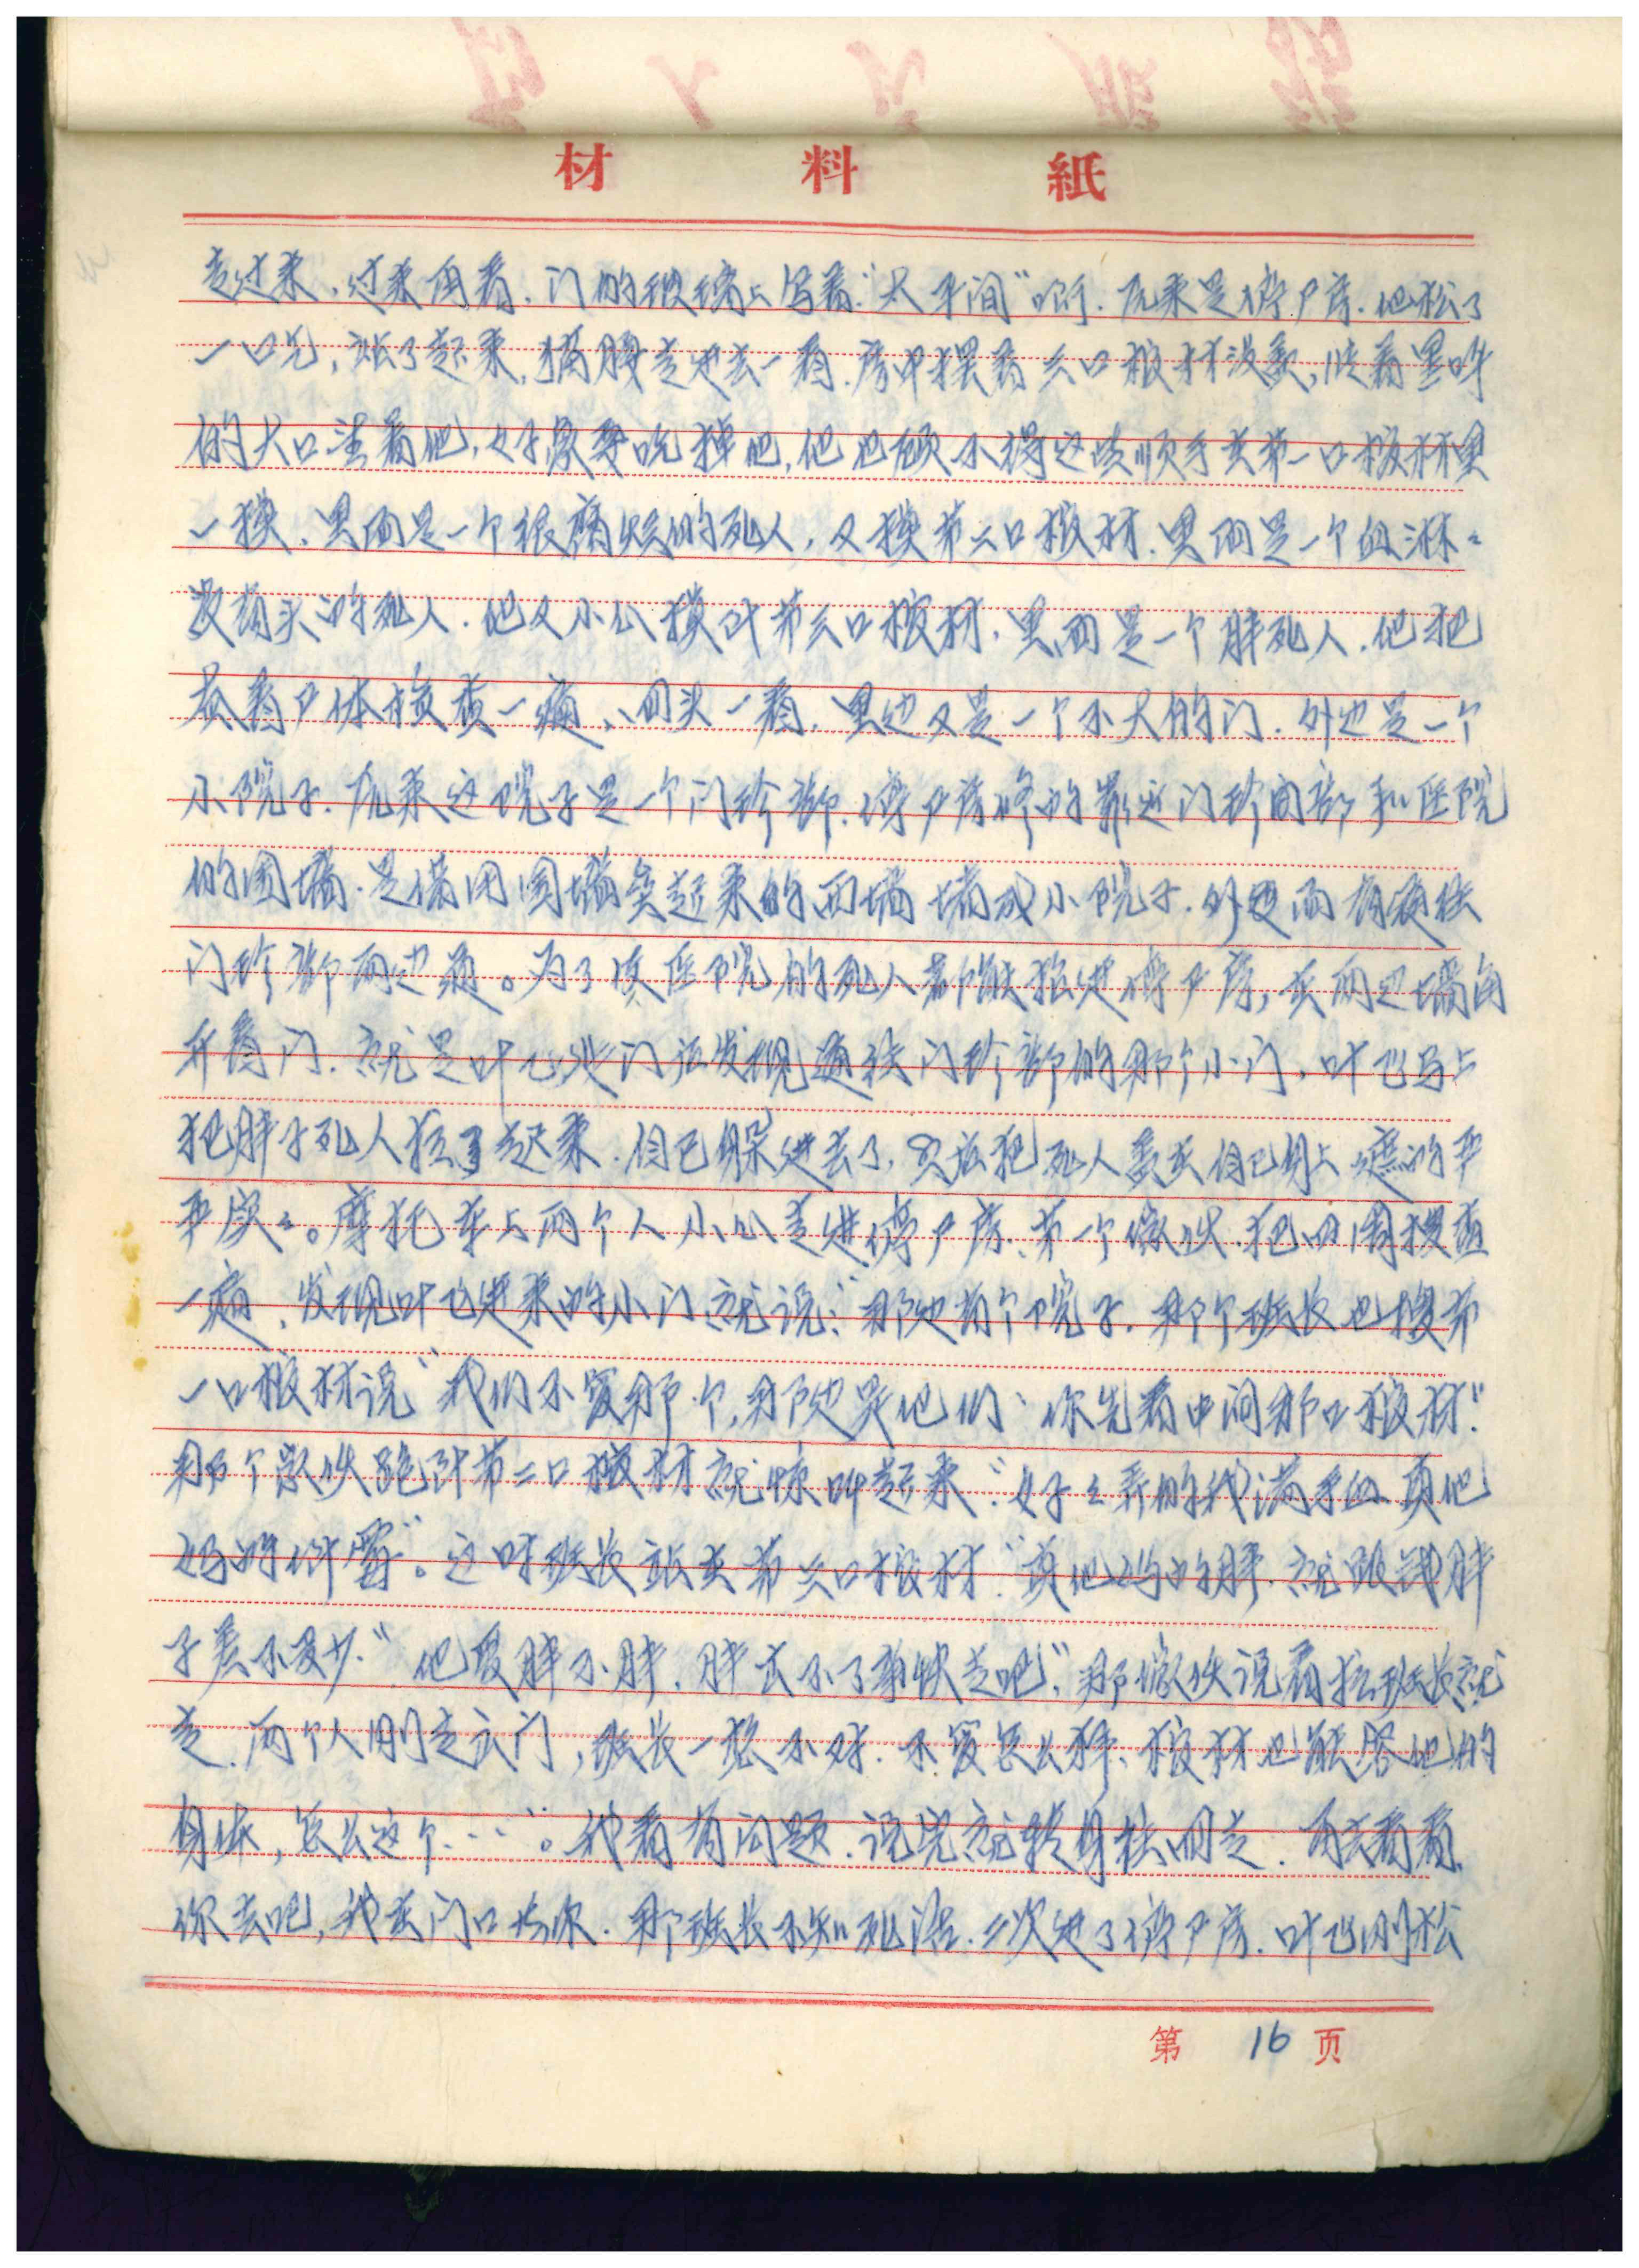 材料紙
走过来，过来再看，门的玻璃上写着“太平间”啊。原来是停尸房。他松了
一口气，站了起来，猫腰走进去一看，房中摆着三口棺材没盖，张着黑呼
的大口望着他，好象要吃掉他，他也顾不得这些顺手在第一口棺材里
一摸，里面是一个很腐烂的死人，又摸第二口棺材，里面是一个血淋〻
没有头的死人。他又小心摸到第三口棺材，里面是一个胖死人。他把
尸体检查一遍、回头一看，里边又是一个不大的门。外边是一个
小院子。原来这院子是一个门诊部。停尸房修的靠近门诊部和医院
的围墙。是借用围墙突起来的两墙堵成小院子。外边两有通往
门诊部两边通。为了使医院的死人都能抬进停尸房，在两边墙角
开着门。就是叶飞进门后发现通往门诊部的那个小门，叶飞马上
把胖子死人拉了起来。自己躲进去了，只后把死人盖在自己身上遮的平
平实〻。摩托车上两个人小心走进停尸房。第一个家伙，把四周搜查
一遍，发现叶飞进来的小门就说：“那边有个院子。那个班长也搜第
一口棺材说“我们不管那个，那边是他们、你先看中间那口棺材”
那个家伙跑到第二口棺材就惊叫起来“好〻弄的我满手血真他
妈的倒霉”。这时班长站在第三口棺材“真他妈的胖，就跟钱胖
子差不多少”“他爱胖不胖，胖去不了身快走吧”，那家伙说着拉班长就
走，两个人刚走出门，班长一想不对，不管怎么胖、棺材也能容他的
身体，怎么这个……”。我看有问题，说完就转身往回走，再去看看，
你去吧，我在门口等你。那班长不知死活，二次进了停尸房，叶飞刚松
第16页